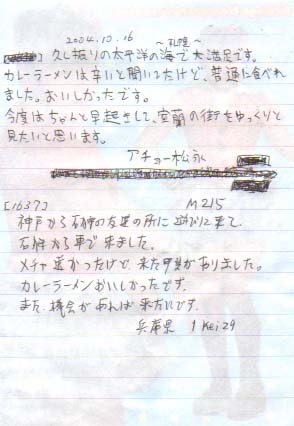 2004.10.16 〜札幌〜
久し振りの太平洋の海で大満足です。
カレーラーメンは辛いと聞いてたけど、普通に食べれ
ました。おいしかったです。
今度はちゃんと早起きして、室蘭の街をゆっくりと
見たいと思います。
アチョー松永
[1637] M215
神戸から石狩の友達の所に遊びに来て、
石狩から車で来ました。
メチャ遠かったけど、来た甲斐がありました。
カレーラーメンおいしかったです。
また、機会があれば来たいです。
兵庫県 1 Kei 29